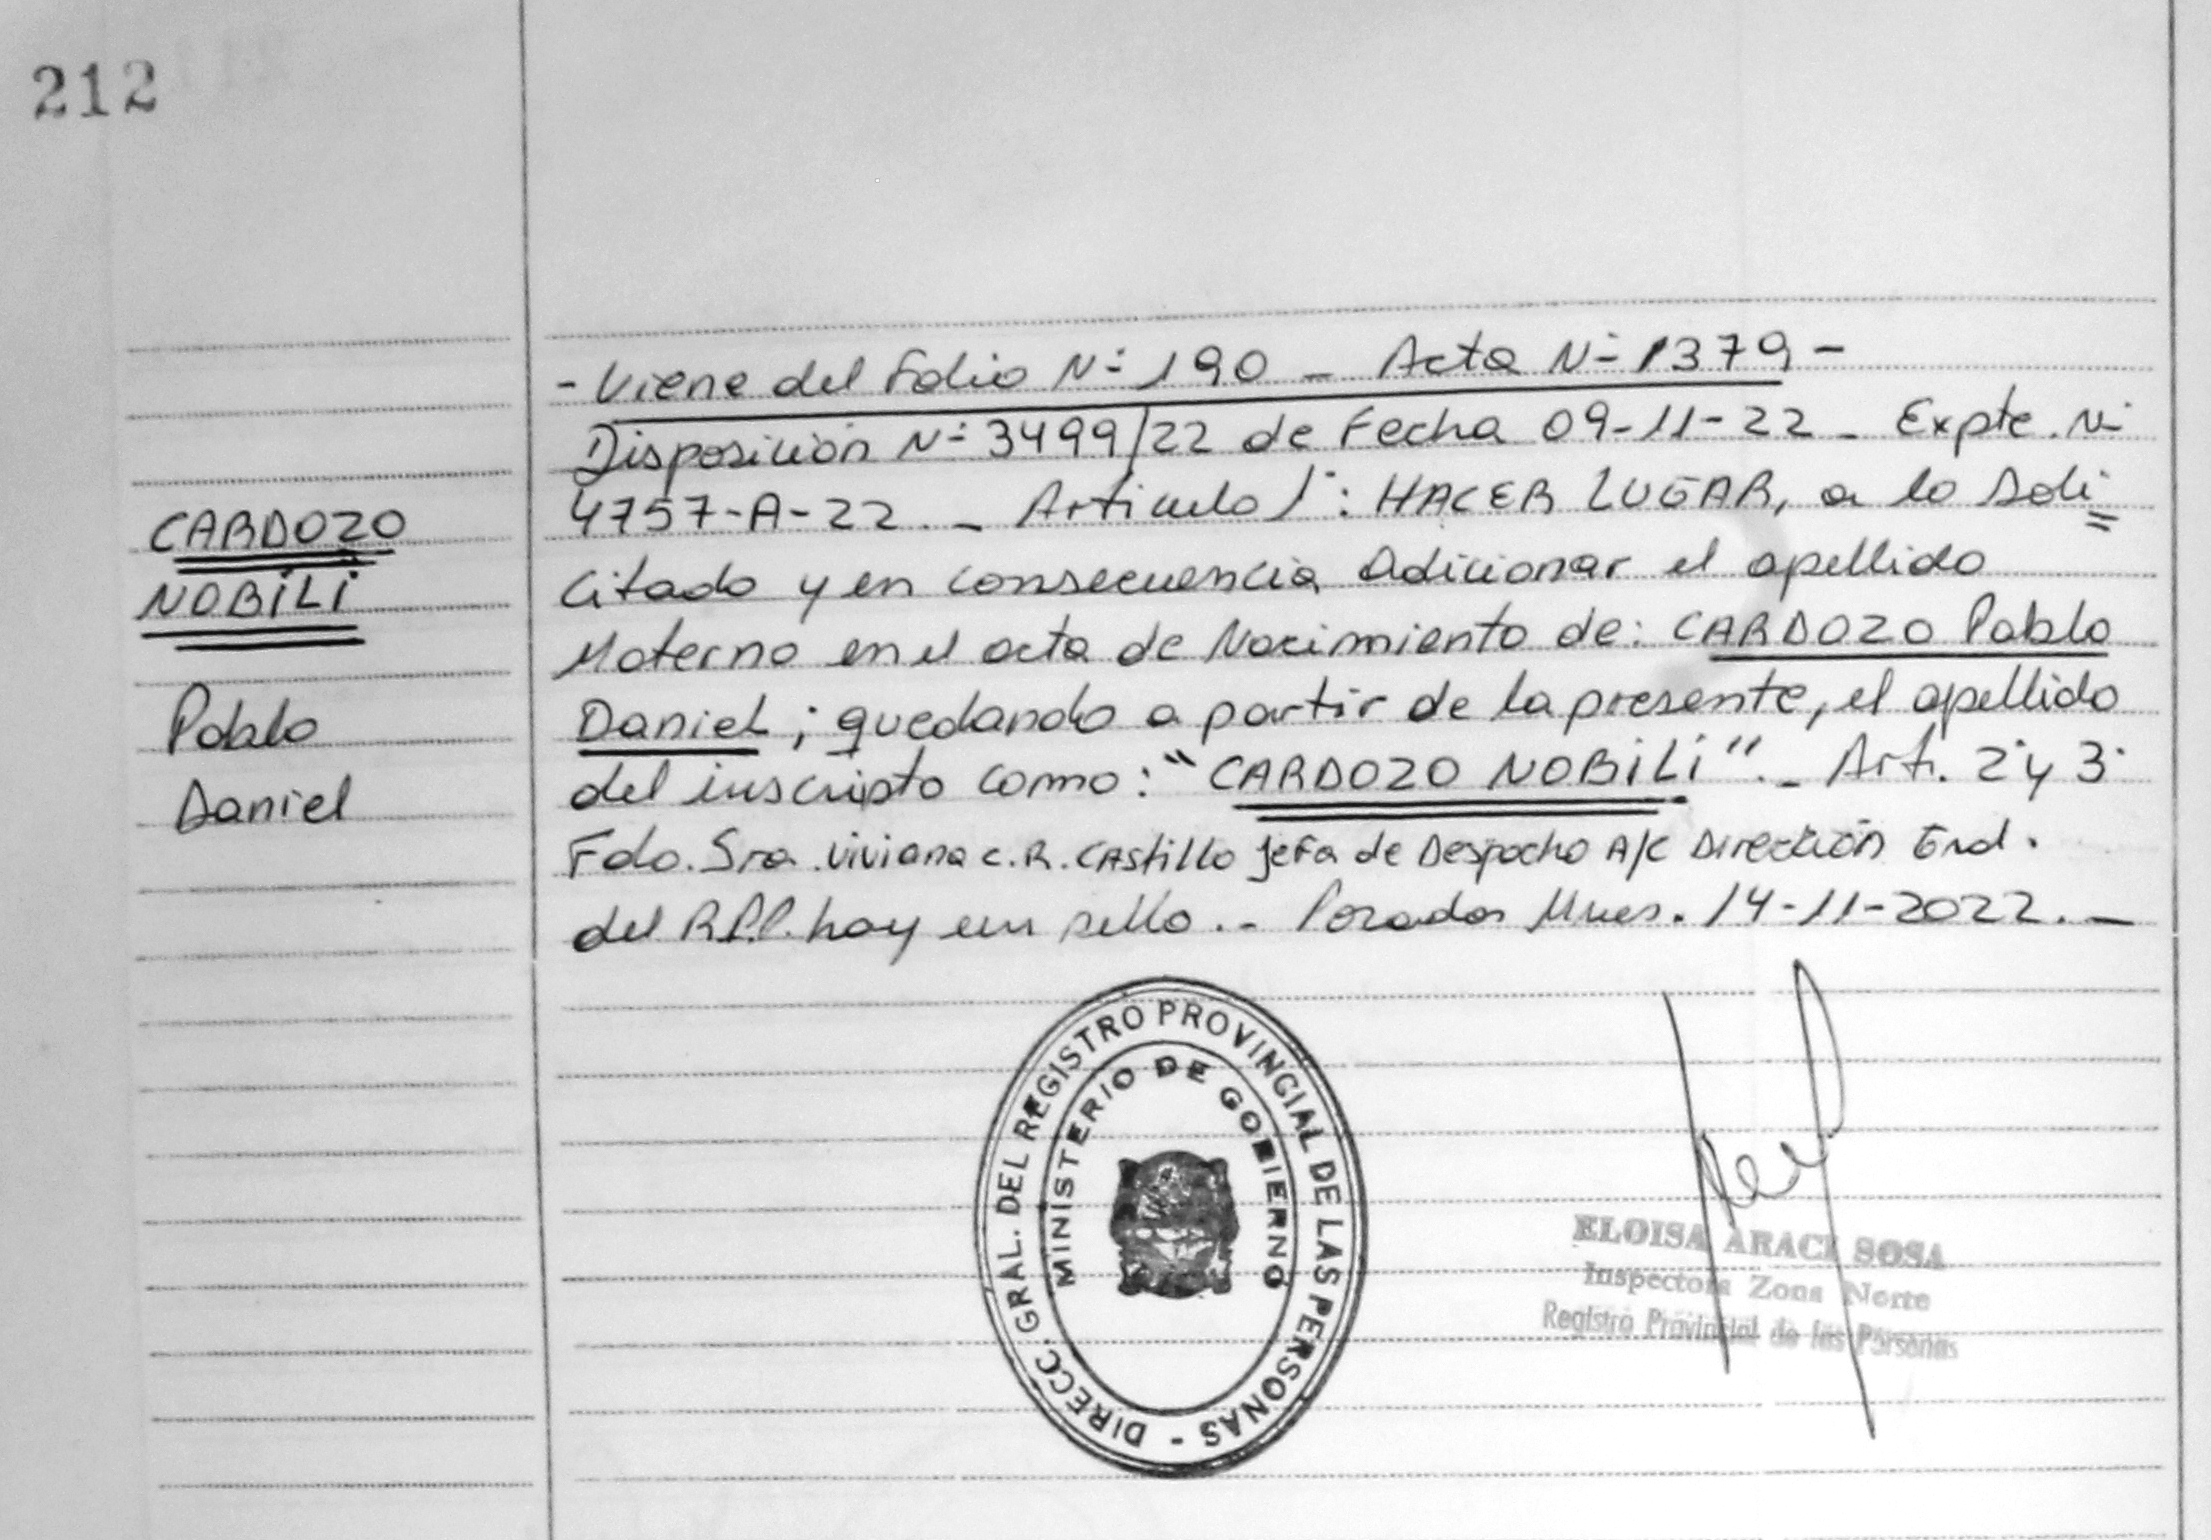 212
CARDOZO
NOBILI
Pablo
Daniel
- Viene del Folio Nº 190 - Acta Nº 1379 -
Disposición Nº 3499/22 de Fecha 09-11-22 - Expte. Nº
4757-A-22 . - Articulo 1º: HACER LUGAR, a lo Soli=
citado y en consecuencia Adicionar el apellido
Materno en el acta de Nacimiento de: CARDOZO Pablo
Daniel ; quedando a partir de la presente, el apellido
del inscripto como : "CARDOZO NOBILI". - Art. 2º y 3º
Fdo. Sra. Viviana C. R. Castillo Jefa de Despacho A/C Dirección Gral.
del R.P.P. hay un sello . - Posadas Mnes. 14-11-2022. -
DIRECC. GRAL. DEL REGISTRO PROVINCIAL DE LAS PERSONAS -
MINISTERIO DE GOBIERNO
ELOISA ARACI SOSA
Inspectora Zona Norte
Registro Provincial de las Personas